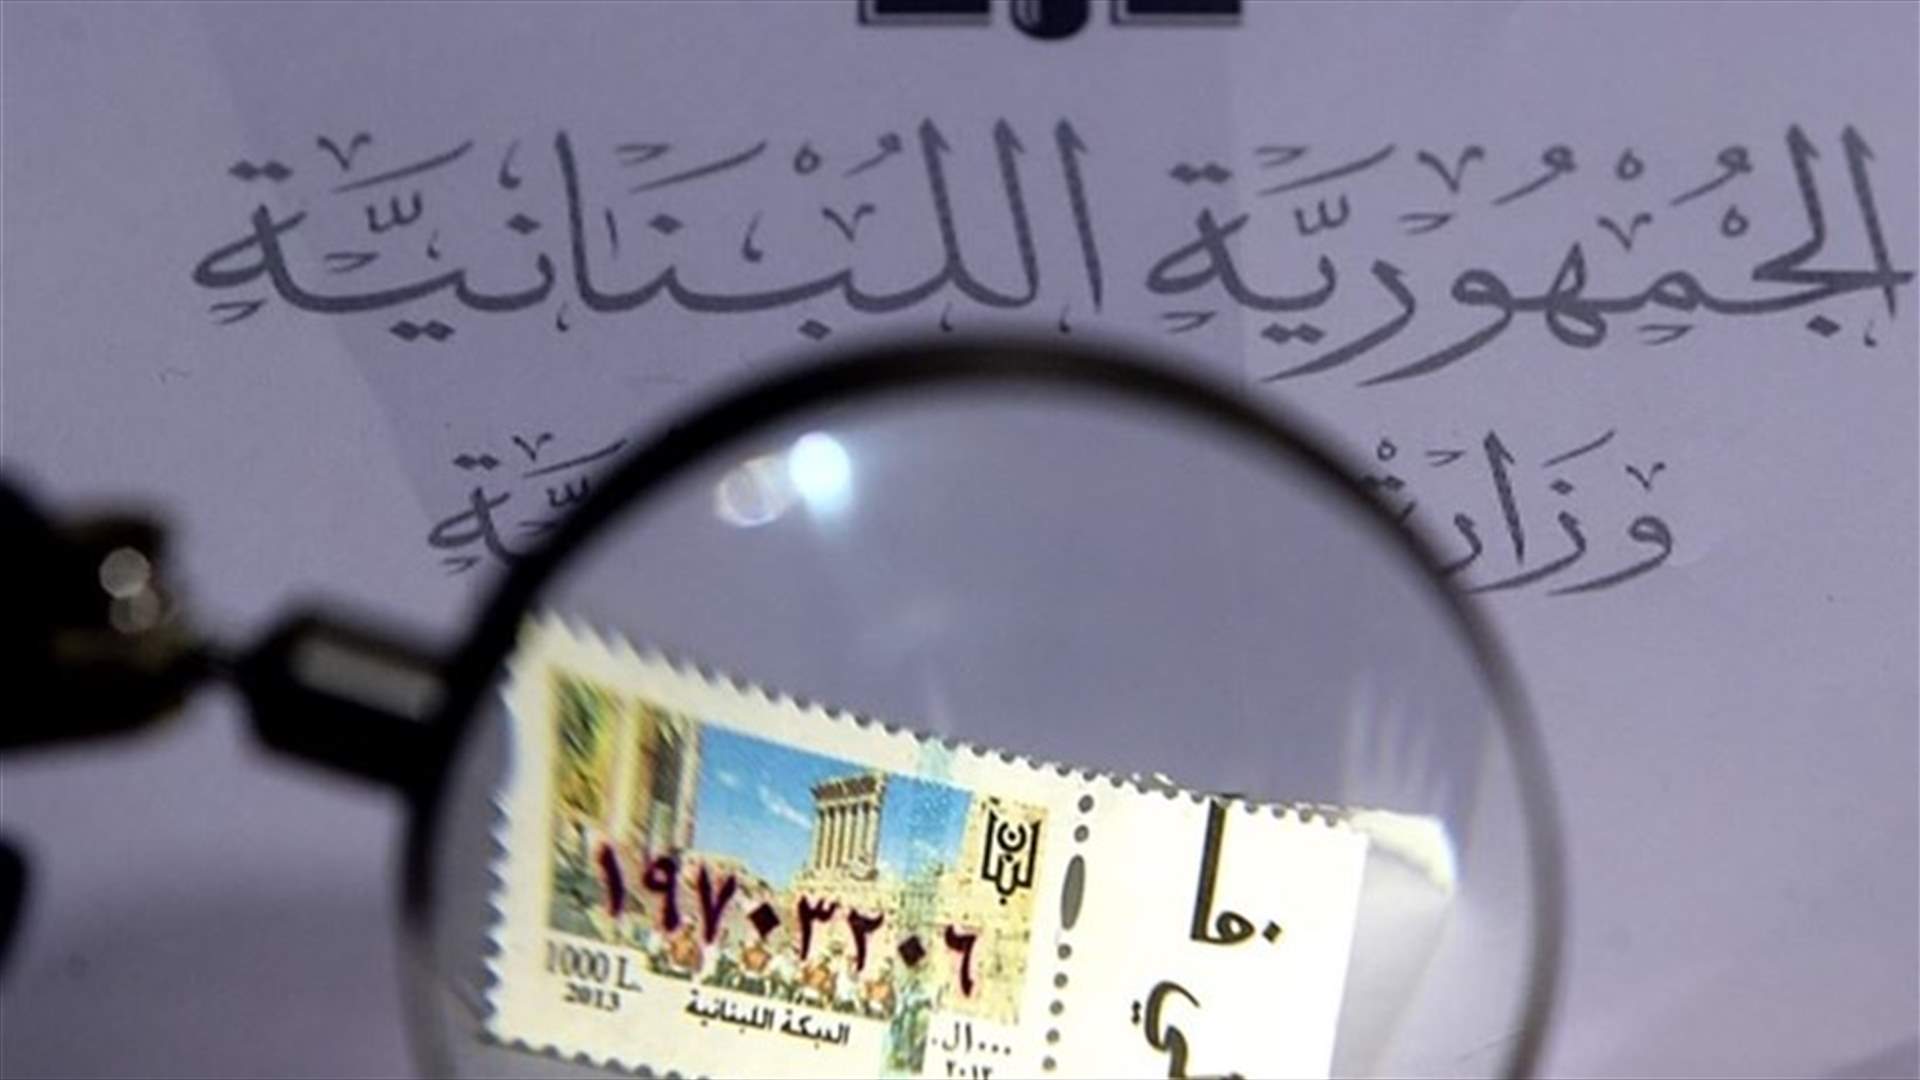 الجُمْهُورِيَّةِ اللُبْنَانِيَّةِ
لبنان
١٩٧٠٣٢٠٦
1000 L.
2013
الدبكة اللبنانية
١٠٠٠ ل.
٢٠١٣